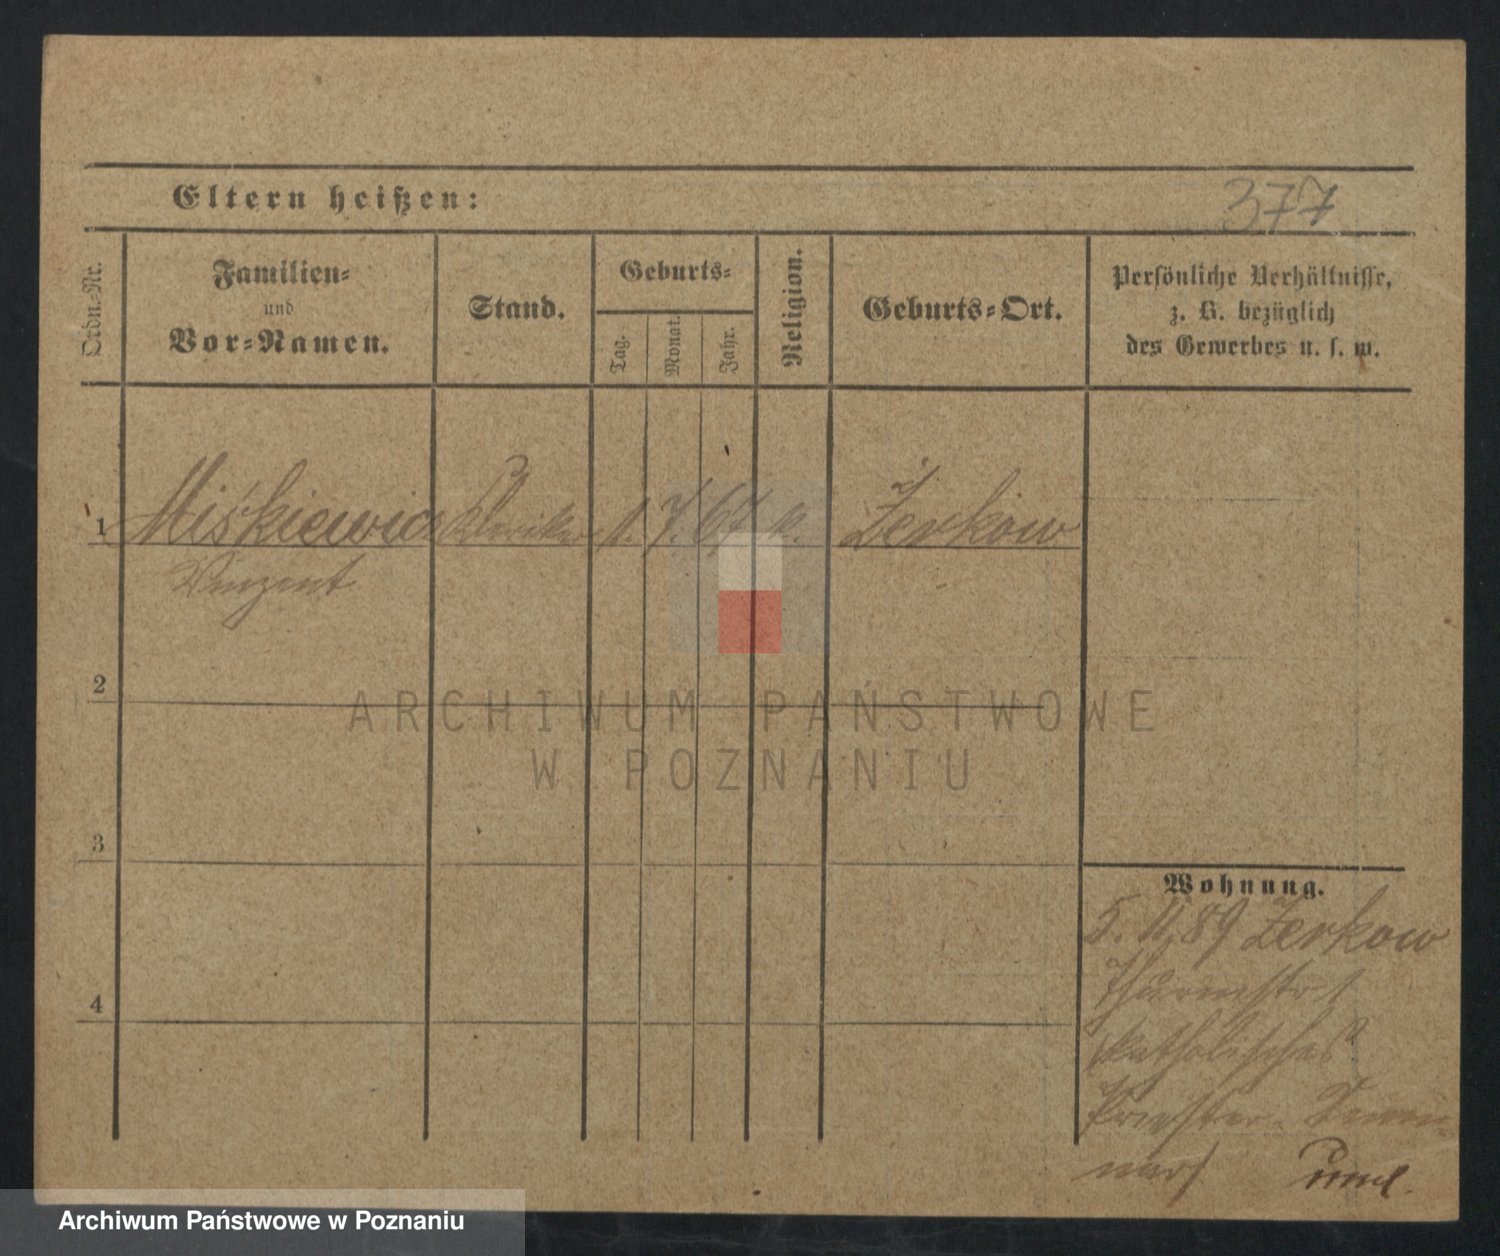 Eltern heißen:
377
Ordn.-Nr.
Familien-
und
Vor-Namen.
Stand.
Geburts-
Tag.
Monat.
Jahr.
Religion.
Geburts-Ort.
Persönliche Verhältnisse,
z. B. bezüglich
des Gewerbes u. s. w.
1 Miśkiewicz Kleriker 1. 7. 67 k. Żerkow
Vinzent
2
3
4
Wohnung.
5. 11. 89 Żerkow
Thurmstr 1
katholisches
Priester-Semi-
nar)
ARCHIWUM PAŃSTWOWE
W POZNANIU
Archiwum Państwowe w Poznaniu